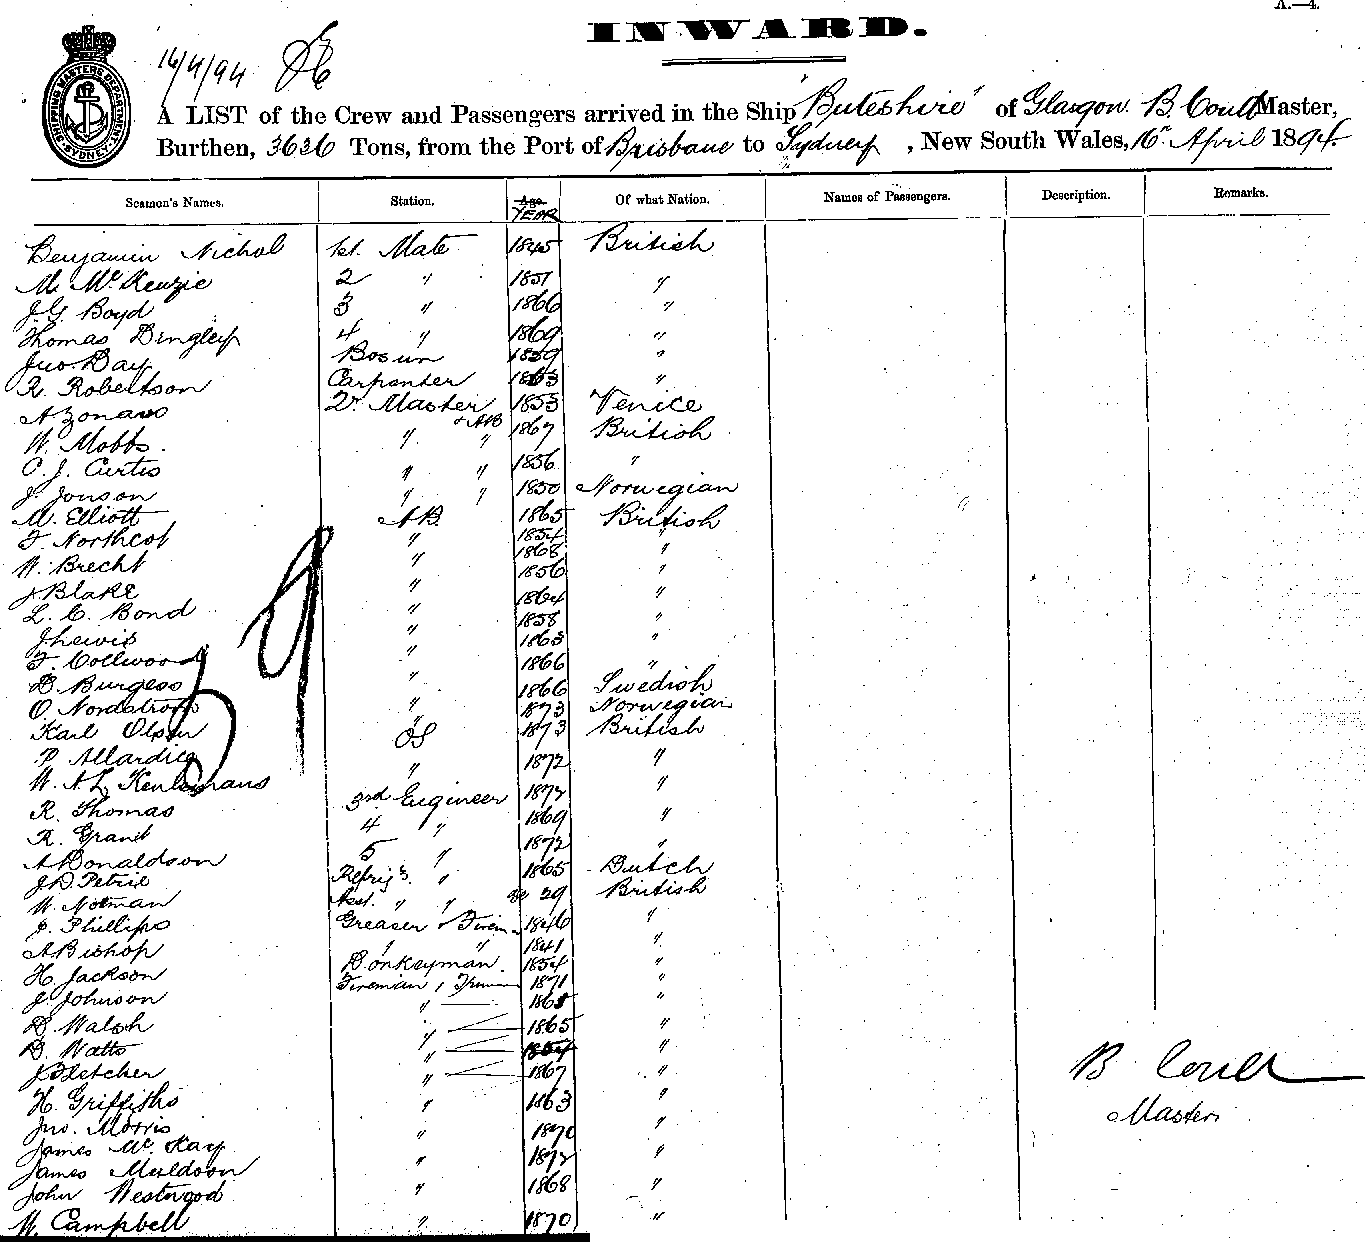 A.—4.
INWARD.
SHIPPING MASTERS DEPARTMENT SYDNEY
16/4/94
A LIST of the Crew and Passengers arrived in the Ship "Buteshire" of Glasgow. B. Coull Master,
Burthen, 3636 Tons, from the Port of Brisbane to Sydney, New South Wales, 16th April 1894.
Seamen's Names. Station. Age YEAR Of what Nation. Names of Passengers. Description. Remarks.
Benjamin Nichol 1st. Mate 1845 British
M. McKenzie 2 " 1851 "
J.G. Boyd 3 " 1866 "
Thomas Dingley 4 " 1869 "
Jno. Day Bosun 1859 "
R. Robertson Carpenter 1863 "
A Zonaro Qr. Master & AB 1853 Venice
W. Mobbs. " " 1867 British
C. J. Curtis " " 1856 "
J. Jonson " " 1850 Norwegian
M. Elliott AB. 1865 British
F. Northcot " 1854 "
W. Brecht " 1868 "
J Blake " 1856 "
L. C. Bond " 1864 "
J Lewis " 1858 "
F. Collwood " 1863 "
D. Burgess " 1866 "
O. Nordstrom " 1866 Swedish
Karl Olsen " 1873 Norwegian
P. Allardice OS 1873 British
W. A. L. " 1872 "
R. Thomas 3rd Engineer 1872 "
R. Grant 4 " 1869 "
A Donaldson 5 " 1872 "
J D. Petrie Refrig. " 1865 Dutch
W. Notman Asst. " " age 29 British
J. Phillips Greaser & Firem 1846 "
A Bishop " " 1841 "
H. Jackson Donkeyman. 1854 "
J. Johnson Fireman & Trimm 1871 "
D. Walsh " 1865 "
D. Watts " 1865 "
J Fletcher " 1854 "
H. Griffiths " 1867 "
Jno. Morris " 1863 "
James McKay " 1870 "
James Muldoon " 1872 "
John Westwood " 1868 "
W. Campbell " 1870 "
B Coull
Master